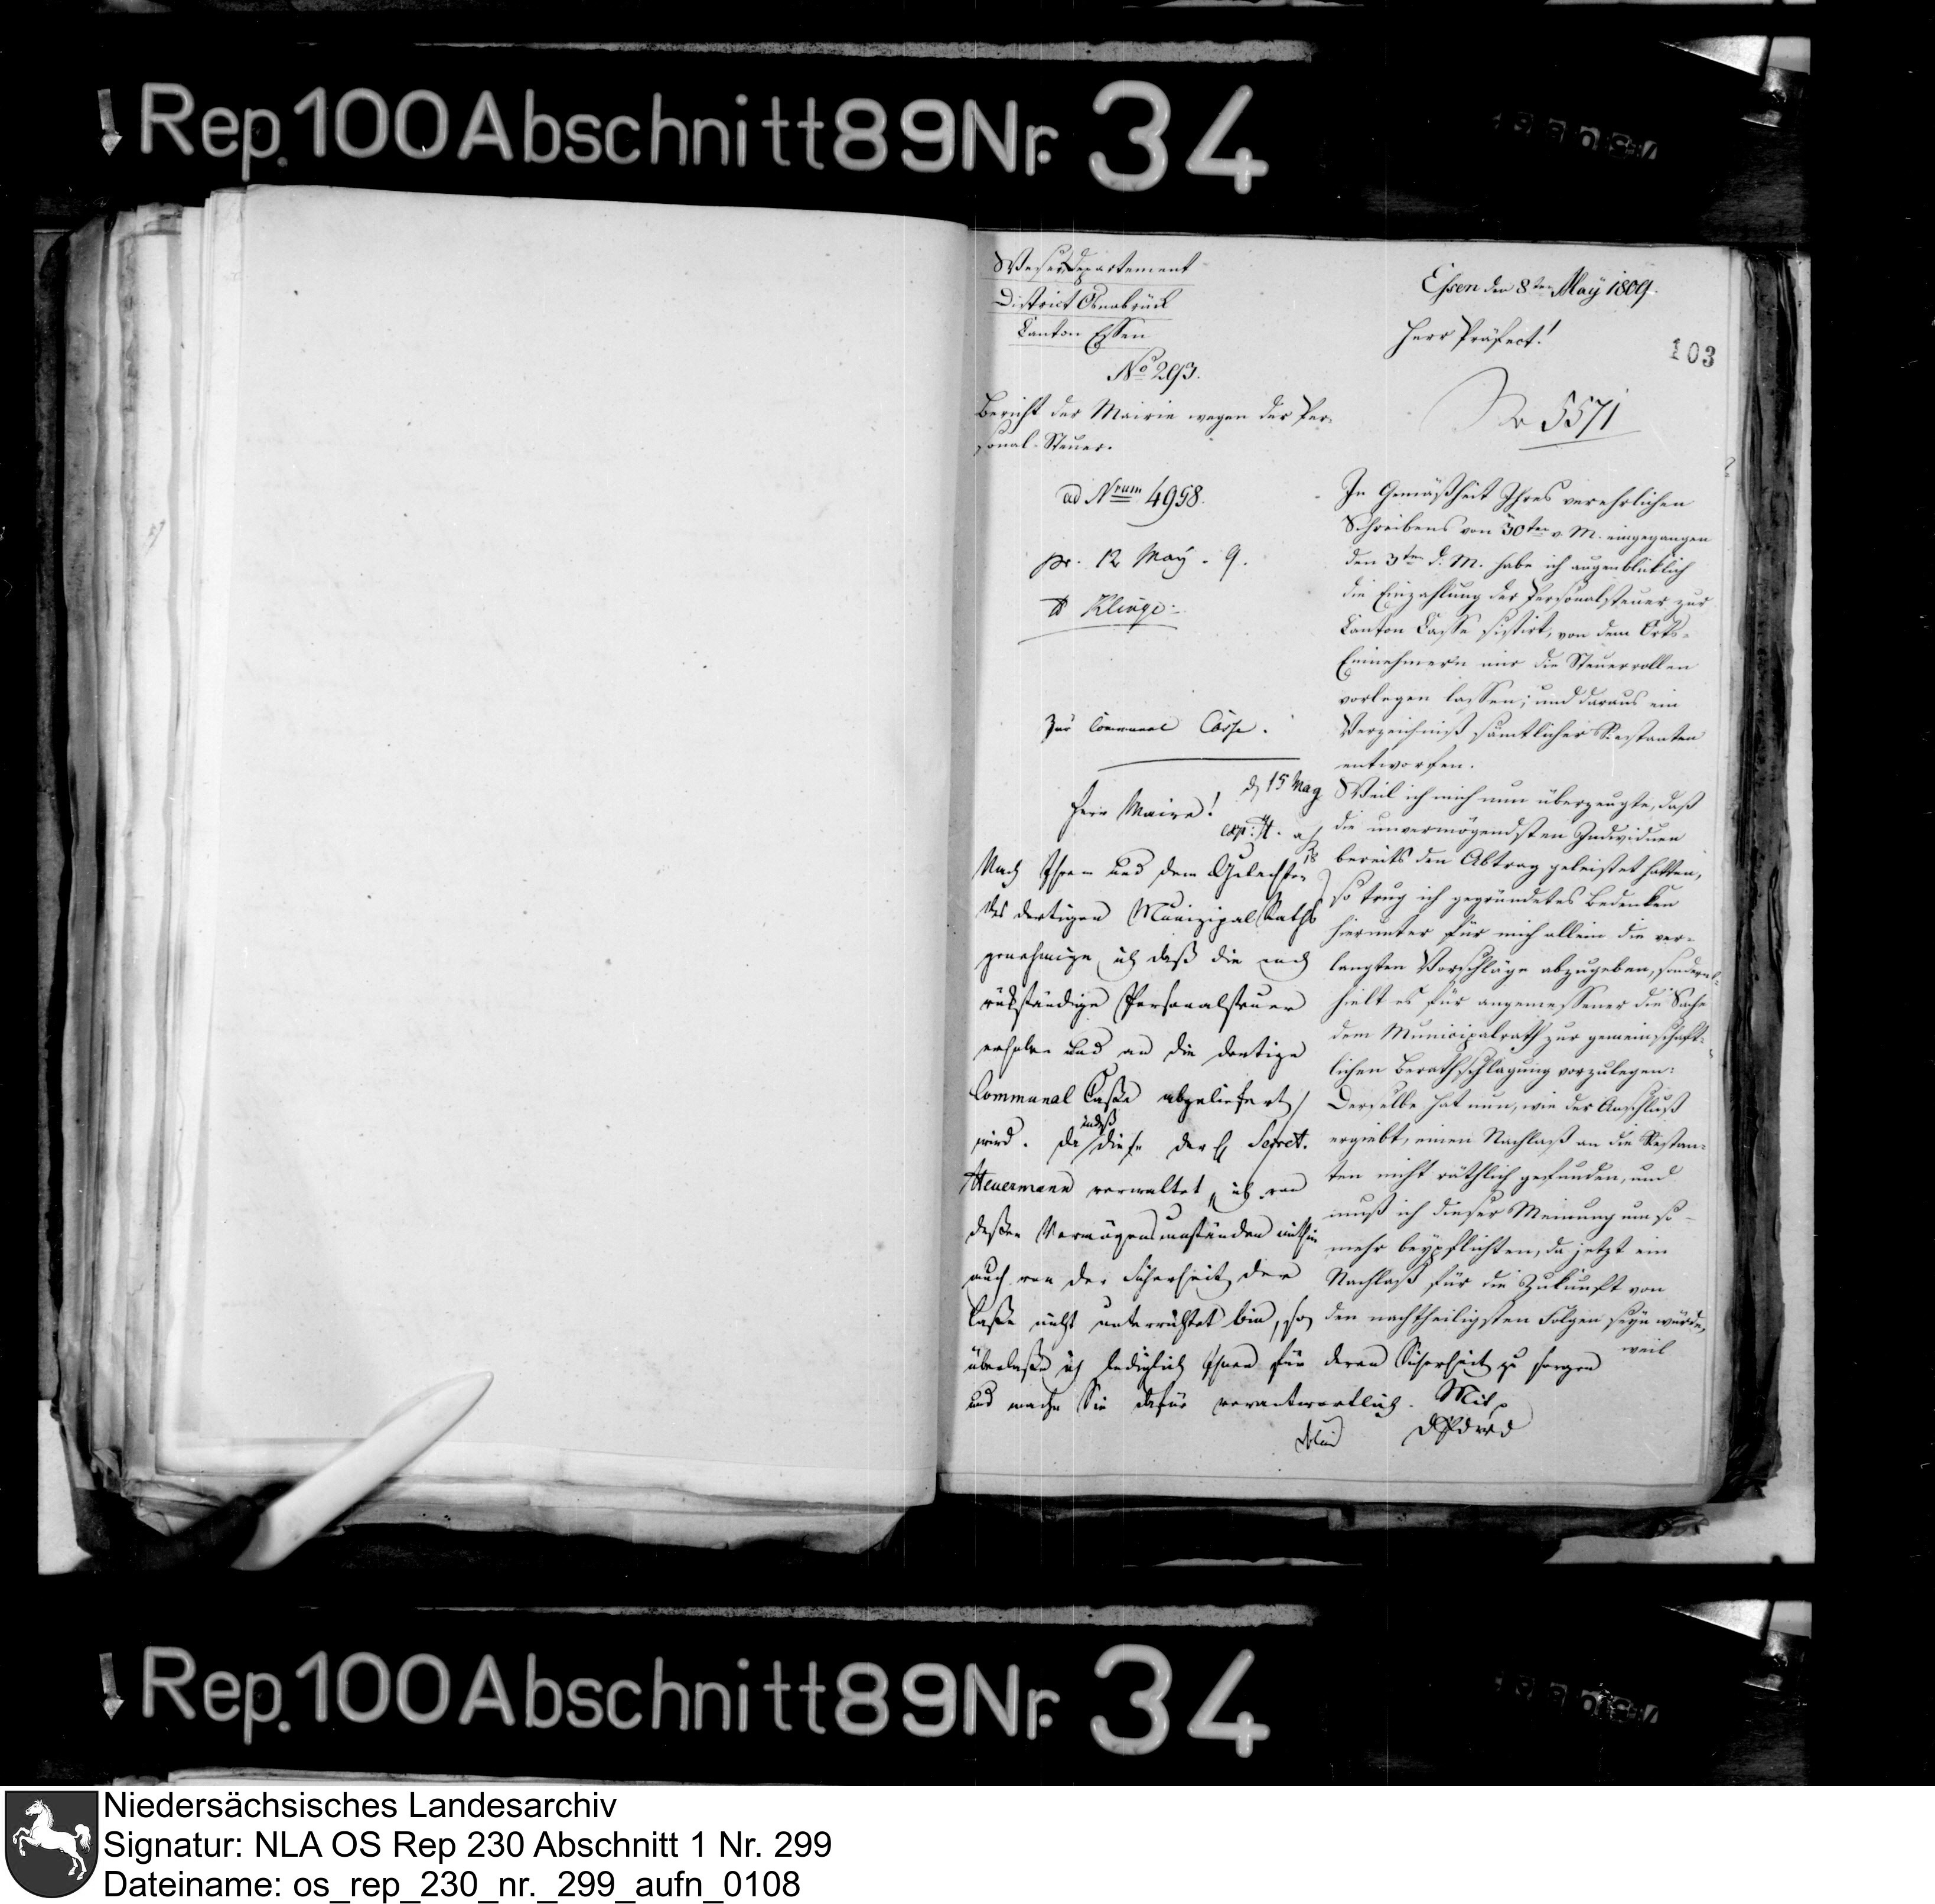 Rep. 100 Abschnitt 89 Nr. 34
Weser Departement
District Osnabrück
Canton Essen
No 293.
Bericht des Mairie wegen der Per-
sonal-Steuer.
ad Nrum 4958.
pr. 12 May. 9.
Klinge
Zur Communal Casse.
d 15 May
Herr Maire!
exp:
Nach Ihrem und dem Gutachten
des dortigen Munizipal Raths
genehmige ich daß die noch
rükständige Personalsteuer
erhoben und an die dortige
Communal Caße abgeliefert
wird. Da indeß diese der H Secret.
Heuermann verwaltet, ich von
deßen Vermögensumständen mithin
auch von der Sicherheit der
Caße nicht unterrichtet bin, so
überlaße ich lediglich Ihnen für deren Sicherheit zu sorgen
und mache Sie dafür verantwortlich. Mit
Essen den 8ten May 1809.
Herr Präfect!
103
No 5571
In Gemäßheit Ihres verehrlichen
Schreibens von 30ten v. M. eingegangen
den 3ten d. M. habe ich augenbliklich
die Einzahlung der Personalsteuer zur
Canton Casse sistirt, von dem Orts-
Einnehmern mir die Steuerrollen
vorlegen lassen; und daraus ein
Verzeichniß sämtlicher Restanten
entworfen.
Weil ich mich nun überzeugte, daß
die unvermögendsten Individuen
bereits den Abtrag geleistet hatten,
so trug ich gegründetes Bedenken
hierunter für mich allein die ver-
langten Vorschläge abzugeben, sondern
hielt es für angemessener die Sache
dem Municipalrath zur gemeinschaft-
lichen Berathschlagung vorzulegen:
Derselbe hat nun, wie der Anschluß
ergiebt, einen Nachlaß an die Restan-
ten nicht räthlich gefunden, und
muß ich dieser Meinung um so
mehr beypflichten, da jetzt ein
Nachlaß für die Zukunft von
den nachtheiligsten Folgen seyn würde,
weil
Rep. 100 Abschnitt 89 Nr. 34
Niedersächsisches Landesarchiv
Signatur: NLA OS Rep 230 Abschnitt 1 Nr. 299
Dateiname: os_rep_230_nr._299_aufn_0108